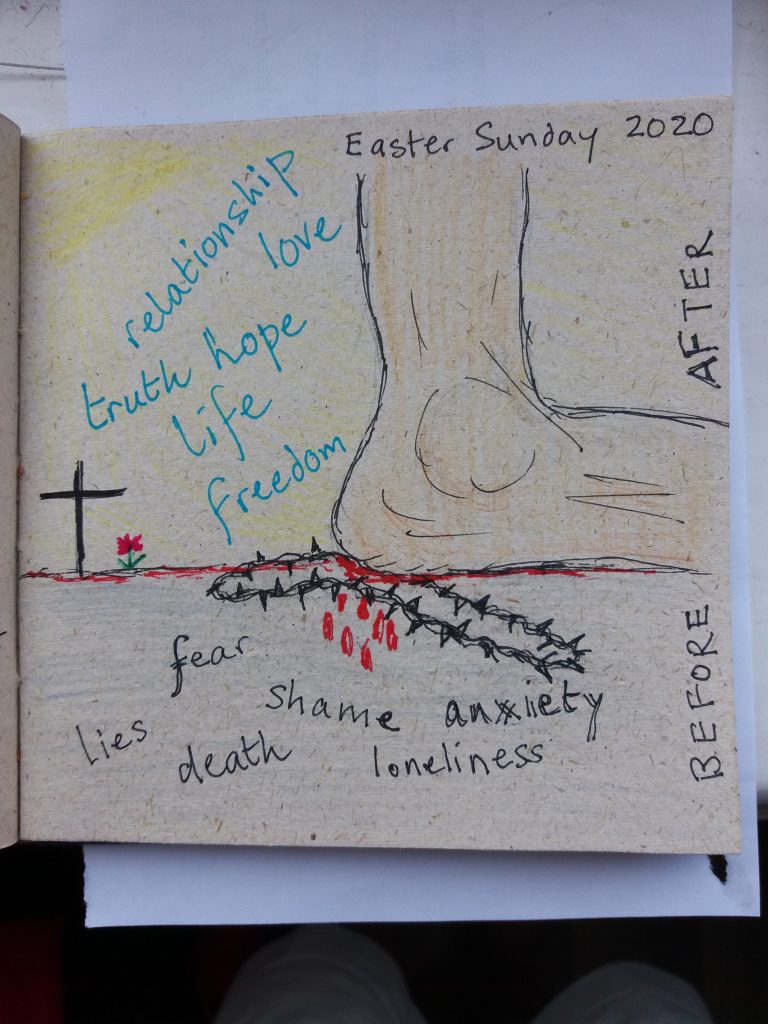 Easter Sunday 2020
relationship
love
truth hope
life
freedom
AFTER
fear
shame anxiety
lies
death loneliness
BEFORE